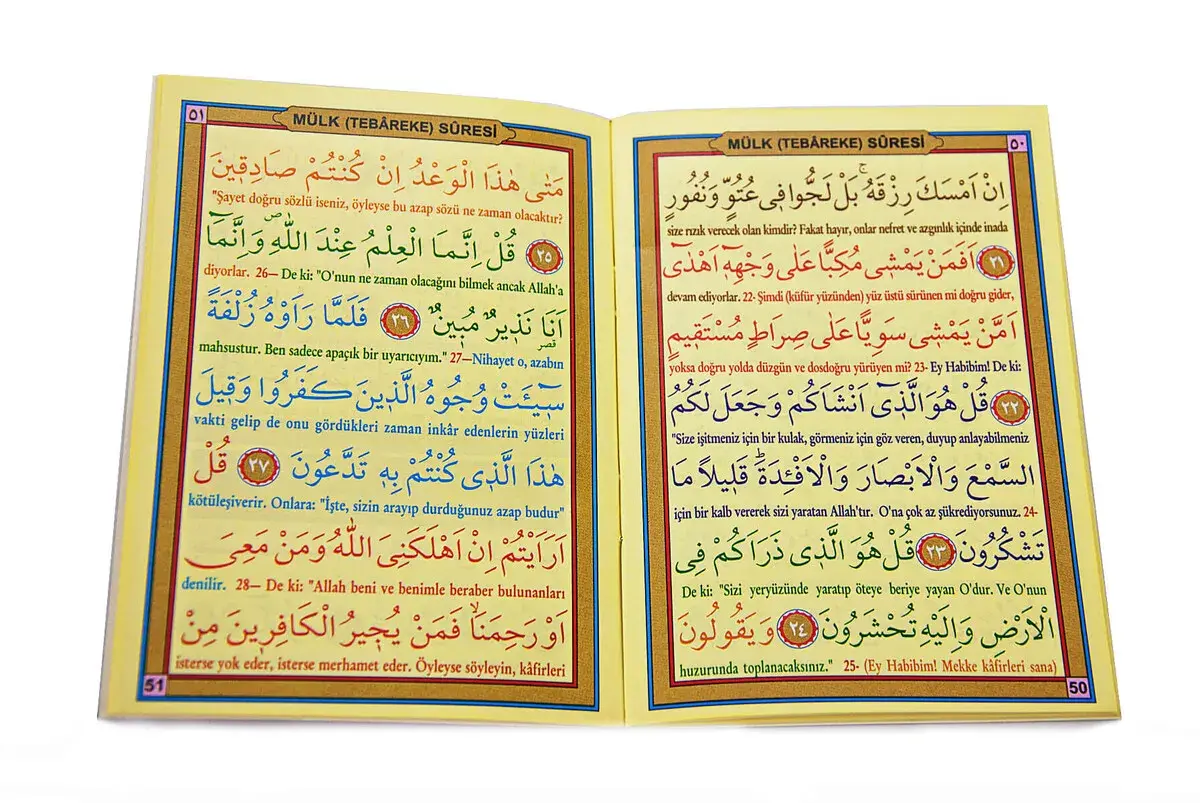 ٥٠
MÜLK (TEBÂREKE) SÛRESİ
اِنْ اَمْسَكَ رِزْقَهُۚ بَلْ لَجُّوا ف۪ي عُتُوٍّ وَنُفُورٍ
size rızık verecek olan kimdir? Fakat hayır, onlar nefret ve azgınlık içinde inada
﴿٢١﴾ اَفَمَنْ يَمْش۪ي مُكِبًّا عَلٰى وَجْهِه۪ٓ اَهْدٰٓى
devam ediyorlar. 22- Şimdi (küfür yüzünden) yüz üstü sürünen mi doğru gider,
اَمَّنْ يَمْش۪ي سَوِيًّا عَلٰى صِرَاطٍ مُسْتَق۪يمٍ
yoksa doğru yolda düzgün ve dosdoğru yürüyen mi? 23- Ey Habibim! De ki:
﴿٢٢﴾ قُلْ هُوَ الَّذ۪ٓي اَنْشَاَكُمْ وَجَعَلَ لَكُمُ
"Size işitmeniz için bir kulak, görmeniz için göz veren, duyup anlayabilmeniz
السَّمْعَ وَالْاَبْصَارَ وَالْاَفْـِٔدَةَۜ قَل۪يلًا مَا
için bir kalb vererek sizi yaratan Allah'tır. O'na çok az şükrediyorsunuz. 24-
تَشْكُرُونَ ﴿٢٣﴾ قُلْ هُوَ الَّذ۪ي ذَرَاَكُمْ فِي
De ki: "Sizi yeryüzünde yaratıp öteye beriye yayan O'dur. Ve O'nun
الْاَرْضِ وَاِلَيْهِ تُحْشَرُونَ ﴿٢٤﴾ وَيَقُولُونَ
huzurunda toplanacaksınız." 25- (Ey Habibim! Mekke kâfirleri sana)
50
٥١
MÜLK (TEBÂREKE) SÛRESİ
مَتٰى هٰذَا الْوَعْدُ اِنْ كُنْتُمْ صَادِق۪ينَ
"Şayet doğru sözlü iseniz, öyleyse bu azap sözü ne zaman olacaktır?
﴿٢٥﴾ قُلْ اِنَّمَا الْعِلْمُ عِنْدَ اللّٰهِۖ وَاِنَّمَٓا
diyorlar. 26— De ki: "O'nun ne zaman olacağını bilmek ancak Allah'a
اَنَا نَذ۪يرٌ مُب۪ينٌ ﴿٢٦﴾ فَلَمَّا رَاَوْهُ زُلْفَةً
قصر
mahsustur. Ben sadece apaçık bir uyarıcıyım." 27—Nihayet o, azabın
س۪ٓيـَٔتْ وُجُوهُ الَّذ۪ينَ كَفَرُوا وَق۪يلَ
vakti gelip de onu gördükleri zaman inkâr edenlerin yüzleri
هٰذَا الَّذ۪ي كُنْتُمْ بِه۪ تَدَّعُونَ ﴿٢٧﴾ قُلْ
kötüleşiverir. Onlara: "İşte, sizin arayıp durduğunuz azap budur"
اَرَاَيْتُمْ اِنْ اَهْلَكَنِيَ اللّٰهُ وَمَنْ مَعِيَ
denilir. 28— De ki: "Allah beni ve benimle beraber bulunanları
اَوْ رَحِمَنَاۙ فَمَنْ يُج۪يرُ الْكَافِر۪ينَ مِنْ
isterse yok eder, isterse merhamet eder. Öyleyse söyleyin, kâfirleri
51